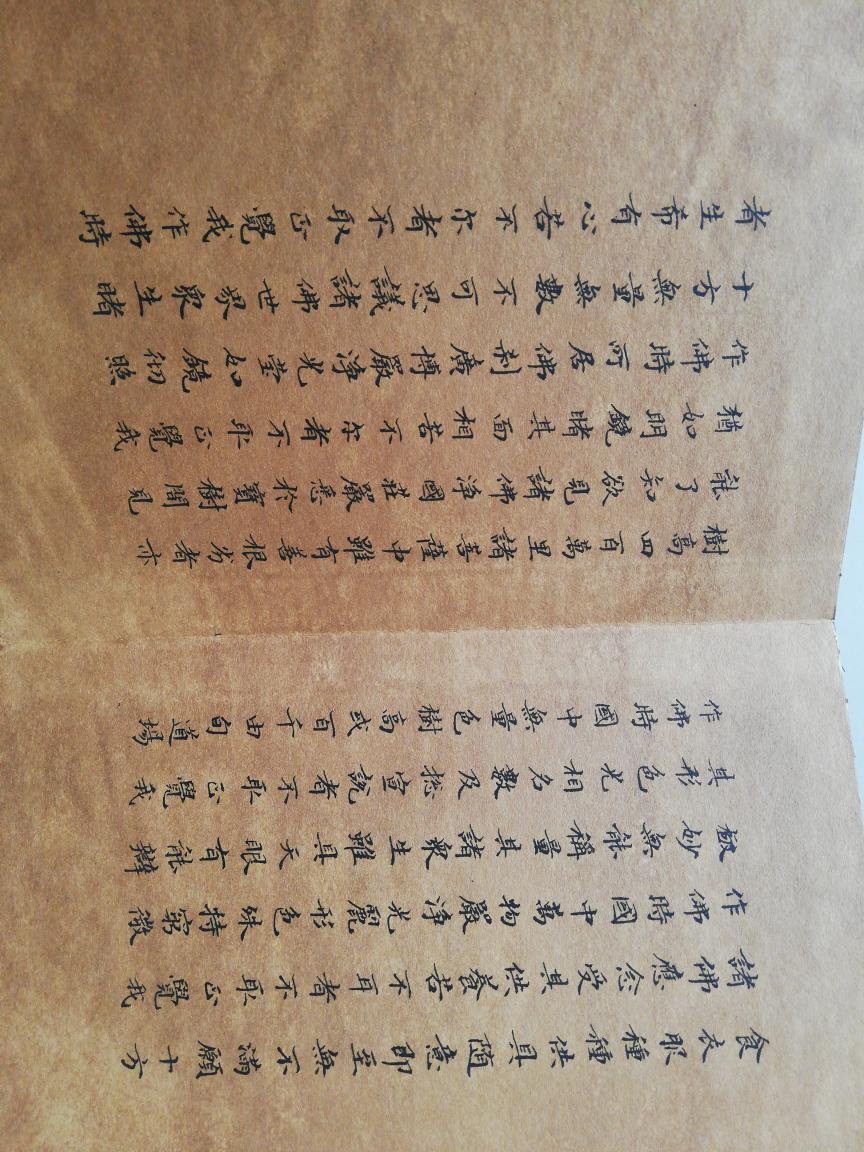 食衣服種種供具隨意即至無不滿願十方
諸佛應念受其供養若不耳者不取正覺我
作佛時國中萬物嚴淨光麗形色殊特窮微
極妙無能稱量其諸衆生雖具天眼有能辯
其形色光相名數及捴宣說者不取正覺我
作佛時國中無量色樹高或百千由旬道場
樹高四百萬里諸菩薩中雖有善根劣者亦
能了知欲見諸佛淨國莊嚴悉於寶樹間見
猶如明鏡睹其面相若不尔者不取正覺我
作佛時所居佛刹廣博嚴淨光瑩如鏡彻照
十方無量無數不可思議諸佛世界衆生睹
者生希有心若不尔者不取正覺我作佛時